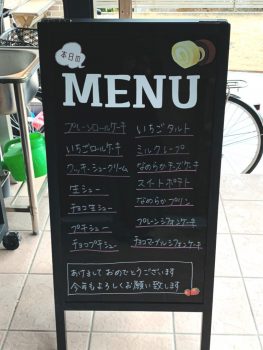 本日の
MENU
プレーンロールケーキ
いちごロールケーキ
クッキーシュークリーム
生シュー
チョコ生シュー
プチシュー
チョコプチシュー
いちごタルト
ミルクレープ
なめらかチーズケーキ
スイートポテト
なめらかプリン
プレーンシフォンケーキ
チョコマーブルシフォンケーキ
あけましておめでとうございます
今年もよろしくお願い致します